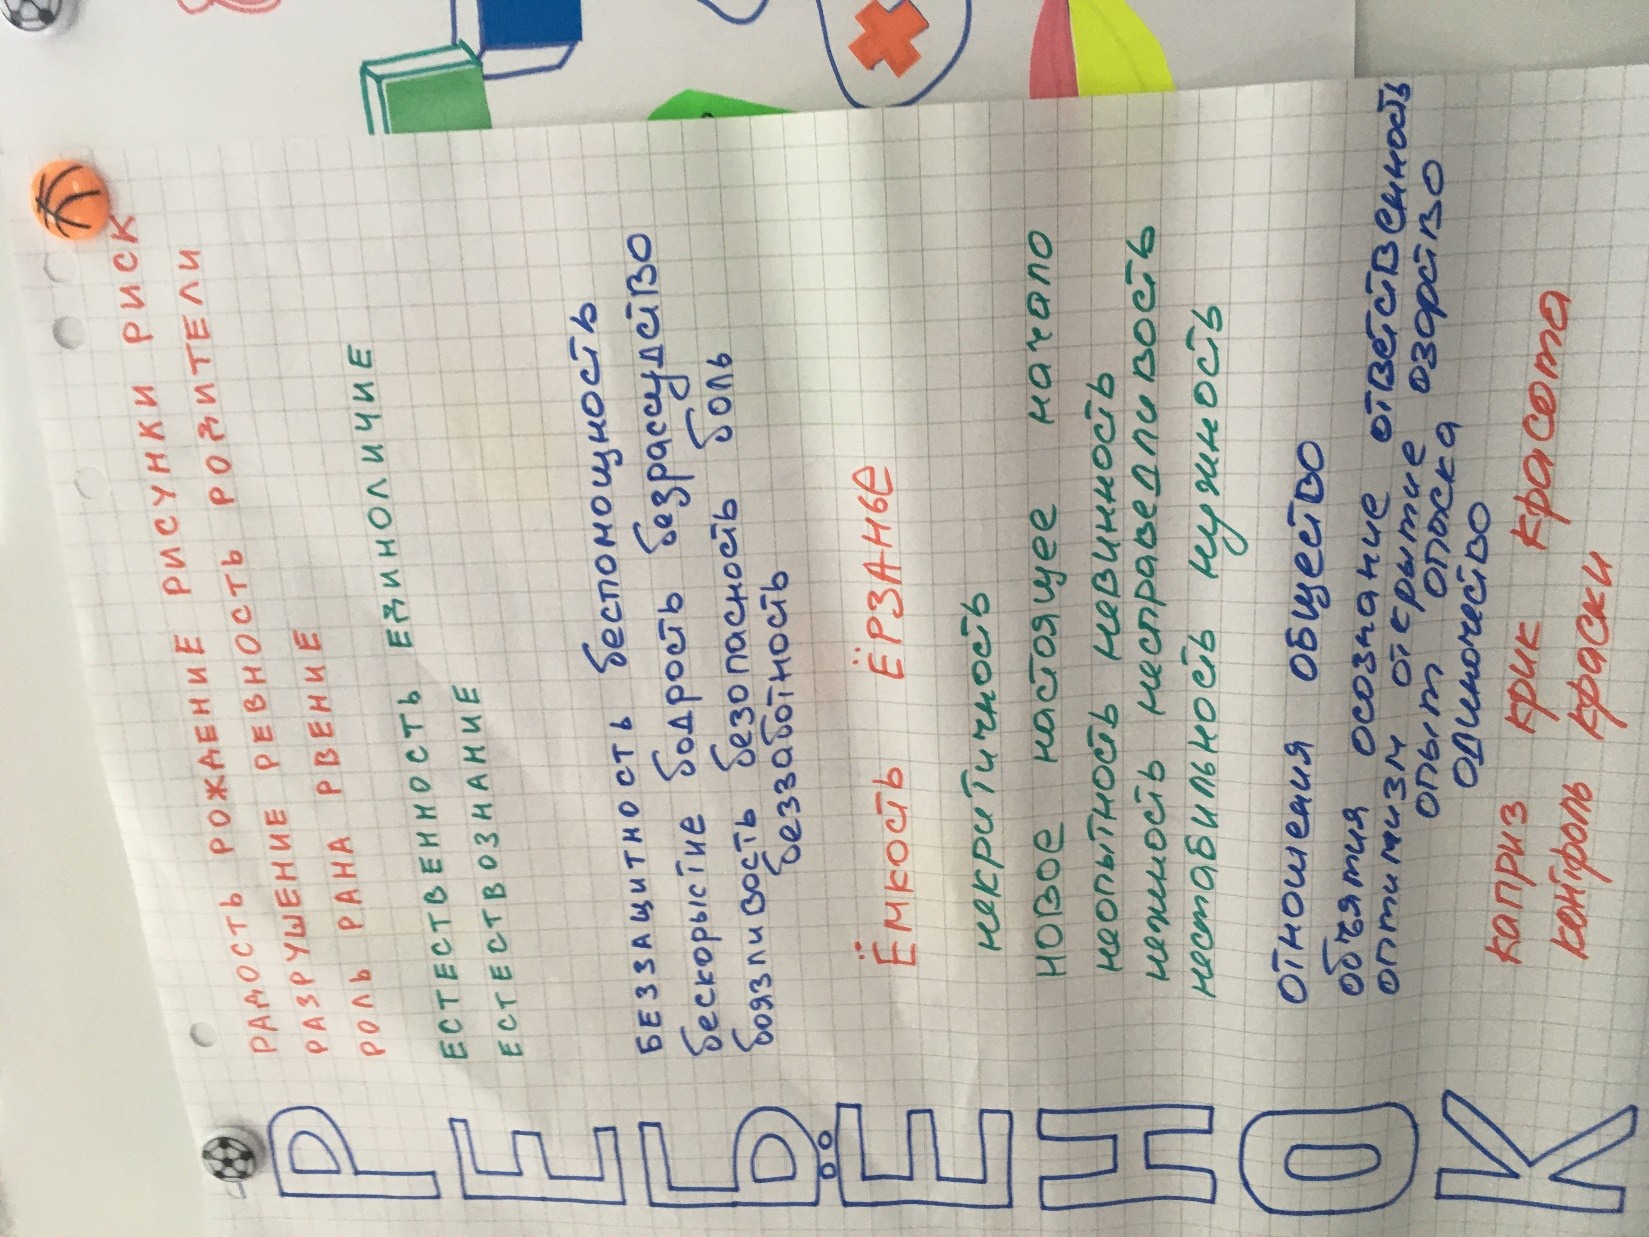 Р
РАДОСТЬ РОЖДЕНИЕ РИСУНКИ РИСК
РАЗРУШЕНИЕ РЕВНОСТЬ РОДИТЕЛИ
РОЛЬ РАНА РВЕНИЕ
Е
ЕСТЕСТВЕННОСТЬ ЕДИНОЛИЧИЕ
ЕСТЕСТВОЗНАНИЕ
Б
БЕЗЗАЩИТНОСТЬ беспомощность
бескорыстие бодрость безрассудство
боязливость безопасность боль
беззаботность
Ё
Ёмкость ЁРЗАНЬЕ
Н
некритичность
новое настоящее начало
неопытность невинность
нежность несправедливость
нестабильность нужность
О
отношения общество
объятия осознание ответственность
оптимизм открытие озорство
опыт опаска
одиночество
К
каприз крик красота
контроль краски